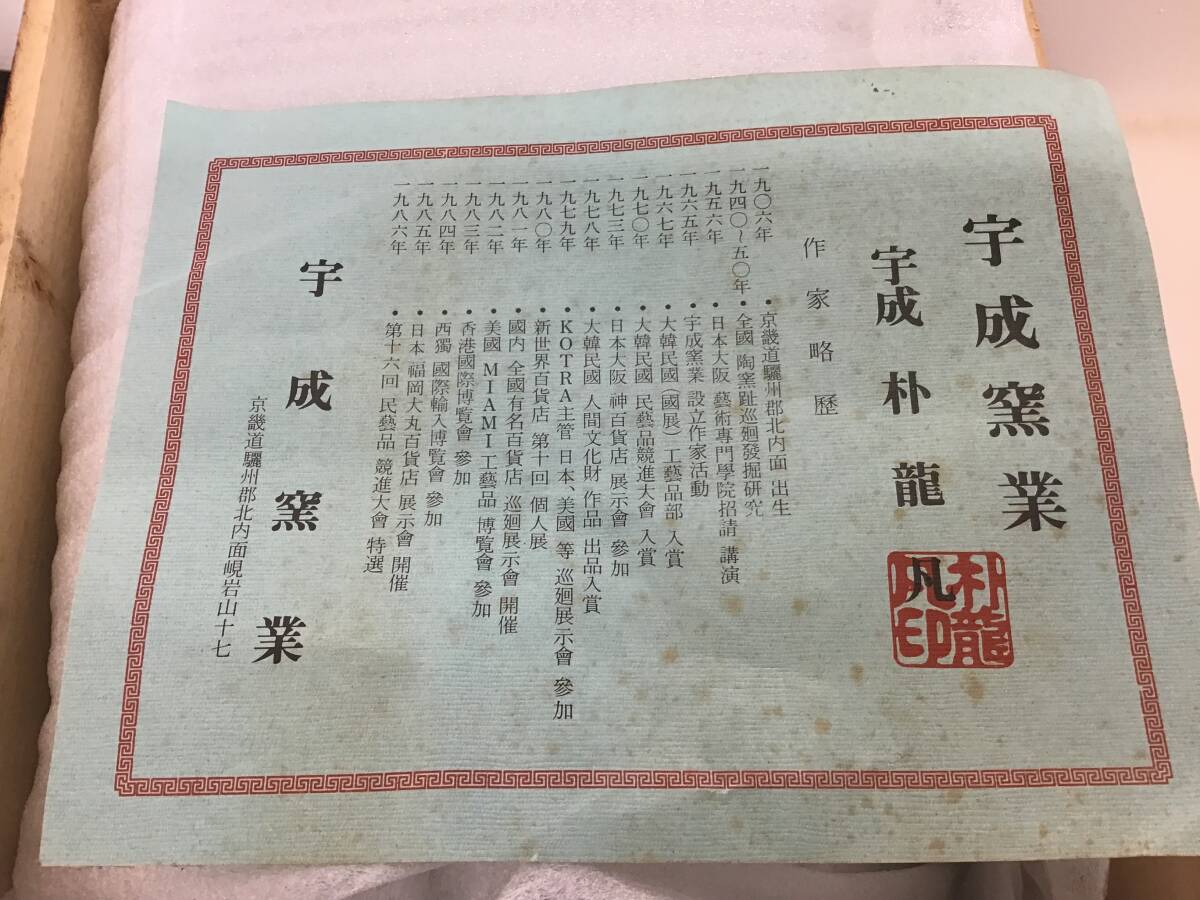 宇成窯業
宇成 朴龍凡
朴龍
凡印
作家略歷
一九〇六年 • 京畿道驪州郡北内面 出生
一九四〇~五〇年 • 全國 陶窯趾巡廻發掘研究
一九五六年 • 日本大阪 藝術專門學院招請 講演
一九六五年 • 宇成窯業 設立作家活動
一九六七年 • 大韓民國(國展)工藝品部 入賞
一九七〇年 • 大韓民國 民藝品競進大會 入賞
一九七三年 • 日本大阪 神百貨店 展示會 參加
一九七八年 • 大韓民國 人間文化財 作品 出品入賞
一九七九年 • KOTRA主管 日本、美國 等 巡廻展示會 參加
一九八〇年 • 新世界百貨店 第十回 個人展
一九八一年 • 國内 全國有名百貨店 巡廻展示會 開催
一九八二年 • 美國 MIAMI工藝品 博覽會 參加
一九八三年 • 香港國際博覽會 參加
一九八四年 • 西獨 國際輸入博覽會 參加
一九八五年 • 日本 福岡大丸百貨店 展示會 開催
一九八六年 • 第十六回 民藝品 競進大會 特選
宇成窯業
京畿道驪州郡北内面峴岩山十七